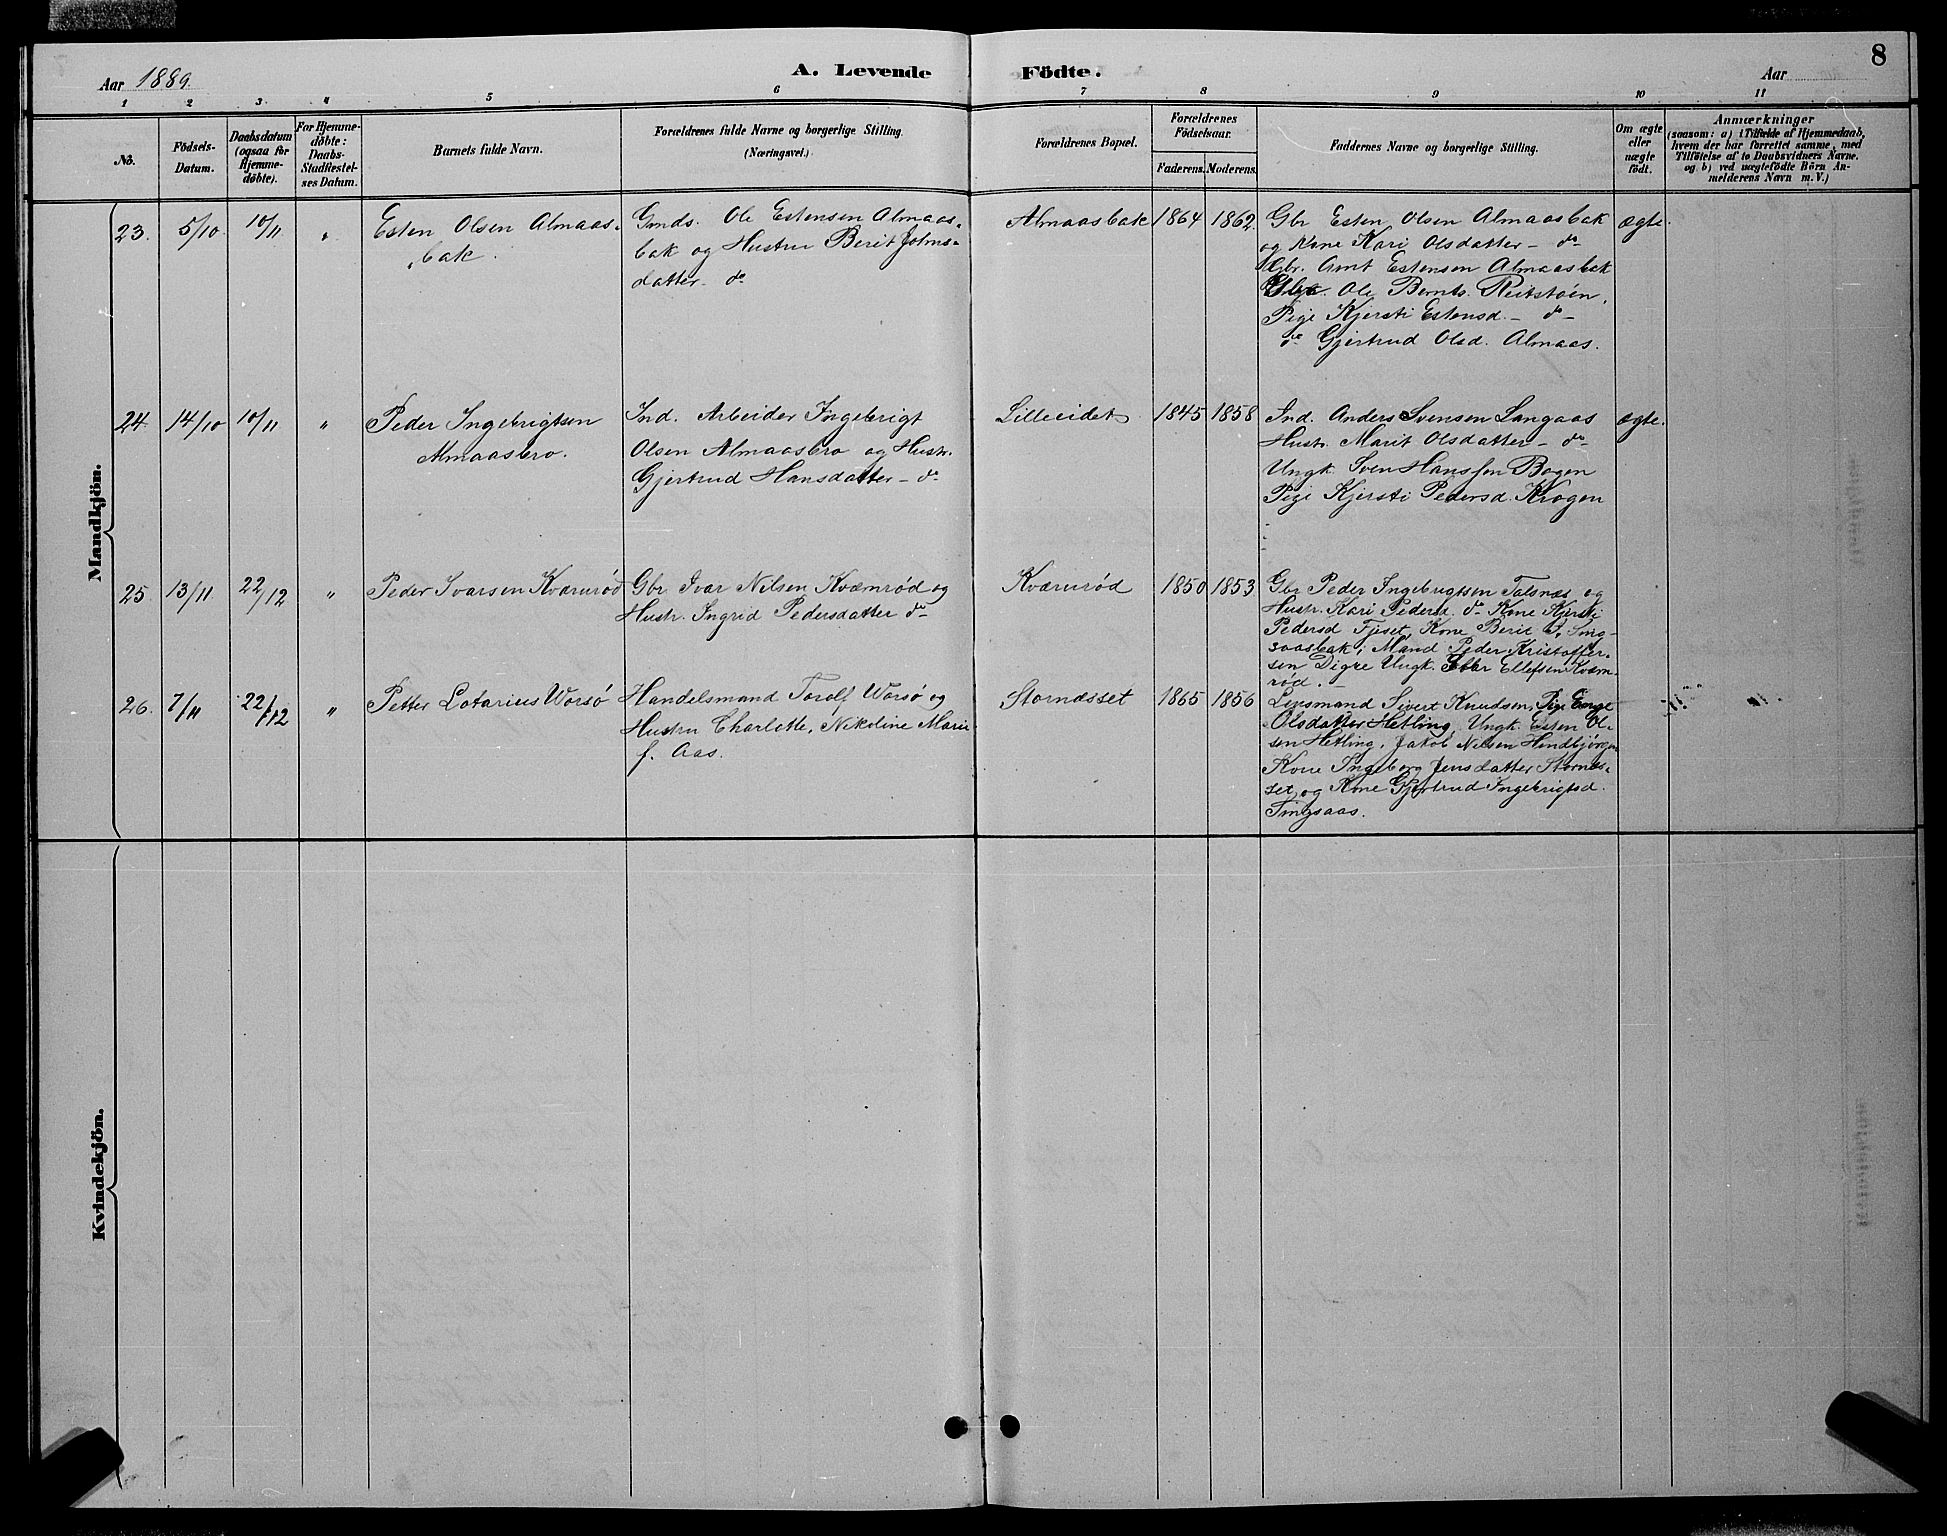 8
Aar 1889.
A. Levende Födte.
Aar
1 2 3. 4 5 6 7 8 9 10 11
No.
Födsels-
Datum.
Daabsdatum
(ogsaa for
Hjemme-
döbte).
For Hjemme-
döbte:
Daabs-
Stadfæstel-
ses Datum.
Barnets fulde Navn.
Forældrenes fulde Navne og borgerlige Stilling.
(Næringsvei.)
Forældrenes Bopæl.
Forældrenes
Födselsaar.
Faderens. Moderens.
Faddernes Navne og borgerlige Stilling.
Om ægte
eller
uægte
födt.
Anmærkninger
(saasom: a) i Tilfælde af Hjemmedaab,
hvem der har forrettet samme, med
Tilföielse af to Daabsvidners Navne.
og b) ved uægtefödte Börn An-
melderens Navn m. V.)
Mandkjön.
23. 5/10. 10/11 "
Esten Olsen Almaas-
bak.
Gmds. Ole Estensen Almaas-
bak og Hustru Berit Johns-
datter - do
Almaasbak 1864 1862.
Gbr Esten Olsen Almaasbak
og Kone Kari Olsdatter - do
Gbr. Arnt Estensen Almaasbak
Ole Bernts. Reitstøen,
Pige Kjersti Estensd. - do -
do Gjertrud Olsd. Almaas.
ægte.
24. 14/10 10/11 "
Peder Ingebrigtsen
Almaasbro.
Ind. Arbeider Ingebrigt
Olsen Almaasbro og Hustr.
Gjertrud Hansdatter - do
Lilleeidet 1845 1858
Ind. Anders Svensen Langaas
Hustr. Marit Olsdatter - do
Ungk. Sven Hanssen Bogen
Pige Kjersti Pedersd. Krogen
ægte.
25. 13/11 22/12 "
Peder Ivarsen Kværnrød
Gbr Ivar Nilsen Kværnrød og
Hustr. Ingrid Pedersdatter do
Kværnrød 1850 1853
Gbr Peder Ingebrigtsen Talsnæs og
Hustr. Kari Pedersd. do Kone Kjersti
Pedersd Fjeset, Kone Berit J. Sing-
saasbak, Mand Peder Kristoffer-
sen Digre Ungk. Ellefsen Kværn-
rød.
26. 7/11 22/12 "
Petter Lotarius Worsø
Handelsmand Torolf Worsø og
Hustru Charlotte, Nikoline Marie
f. Aas.
Stornæsset 1865 1856
Lensmand Sivert Knudsen, Pige
Olsdatter Hetling, Ungk. Esten Ol-
sen Hetling, Jakob Nilsen Hindbjørgen
Kone Ingeborg Jensdatter Stornæs-
set, og Kone Gjertrud Ingebrigtsd.
Singsaas.
Kvindekjön.